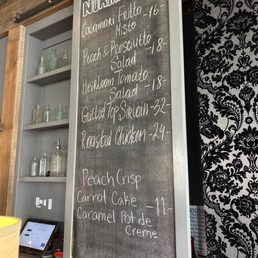 Calamari Fritto -16-
Misto
Peach & Proscuitto
Salad -18-
Heirloom Tomato
Salad -18-
Grilled Top Sirloin -32-
Roasted Chicken -24-
Peach Crisp
Carrot Cake -11-
Caramel Pot de
Creme